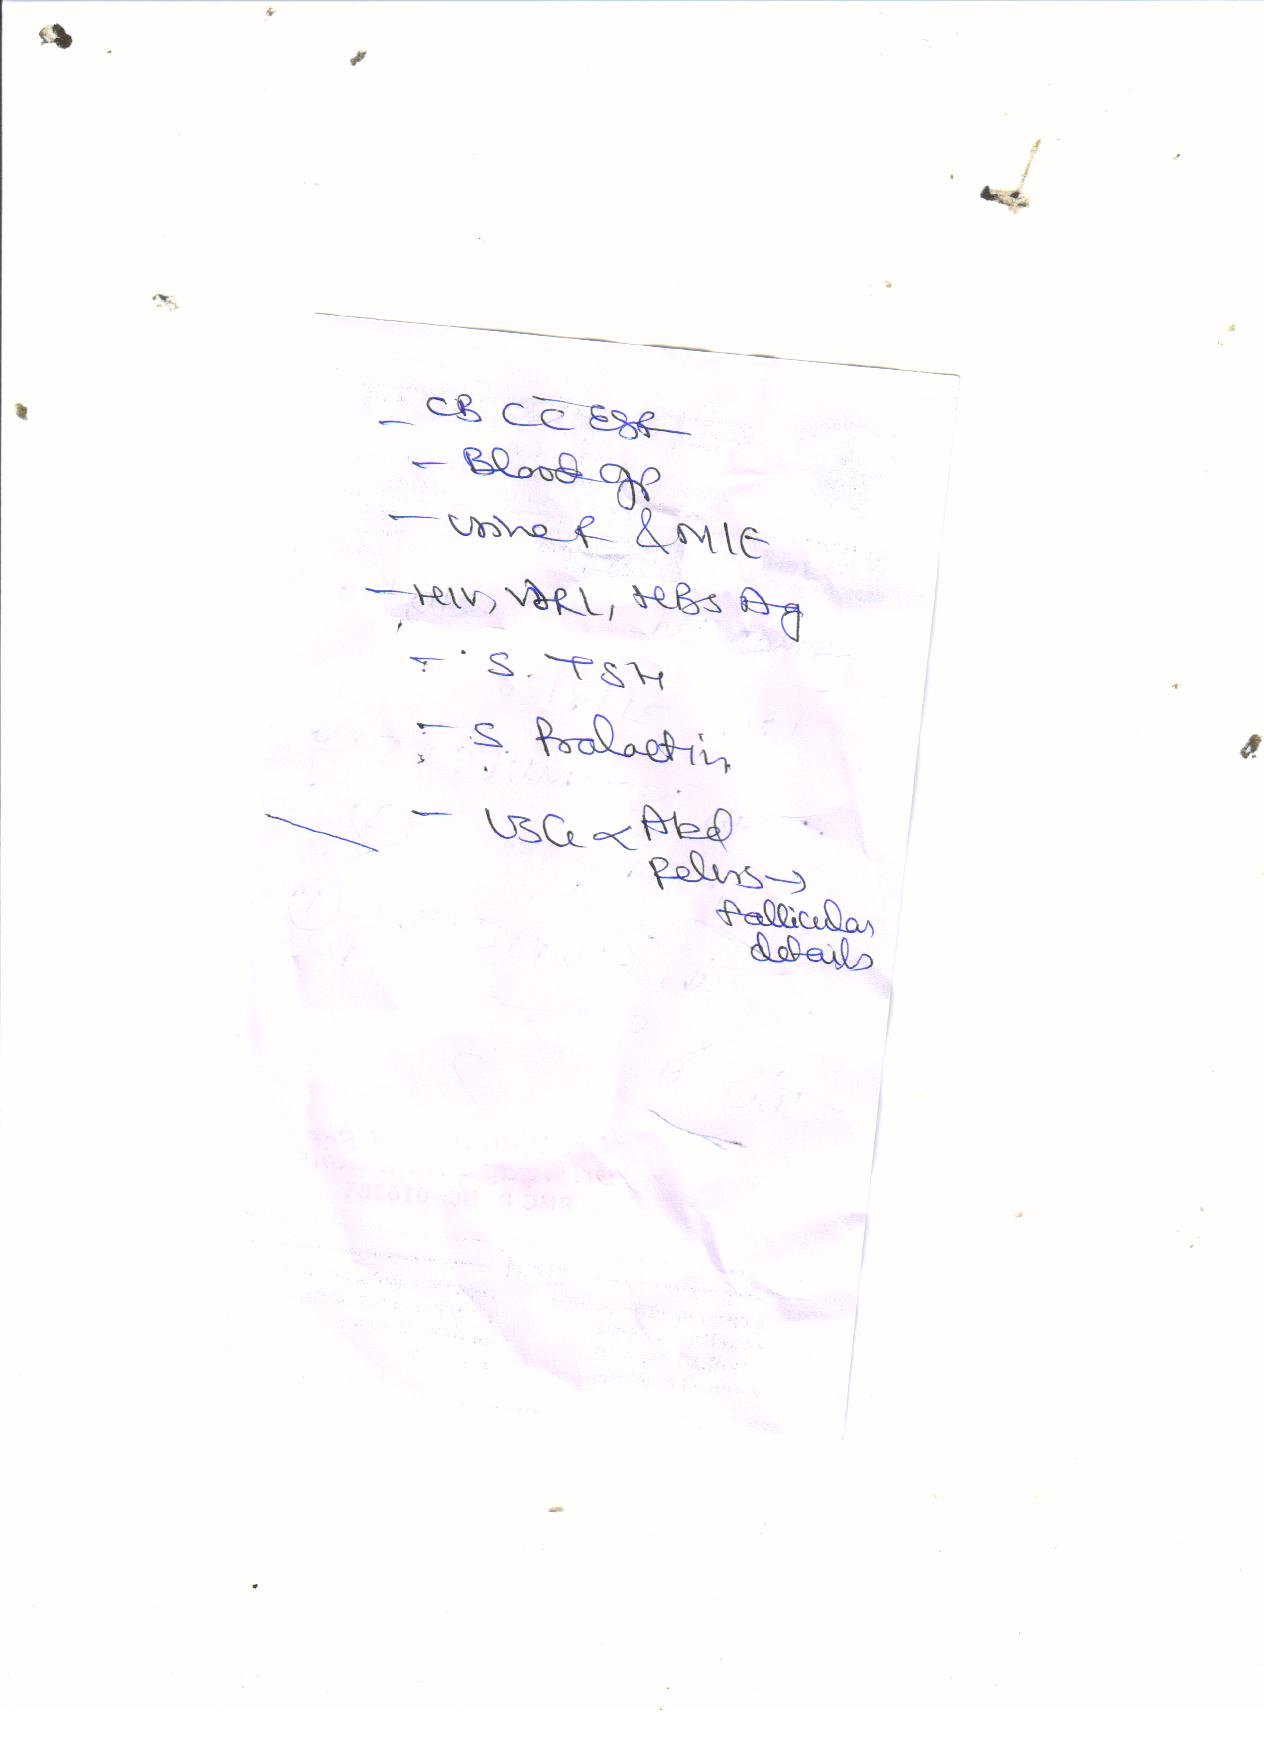 - CBC c̄ ESR
- Blood gp
- Urine R & M/E
- HIV, VDRL, HBsAg
- S. TSH
- S. Prolactin
- USG < Abd
Pelvis →
follicular
details